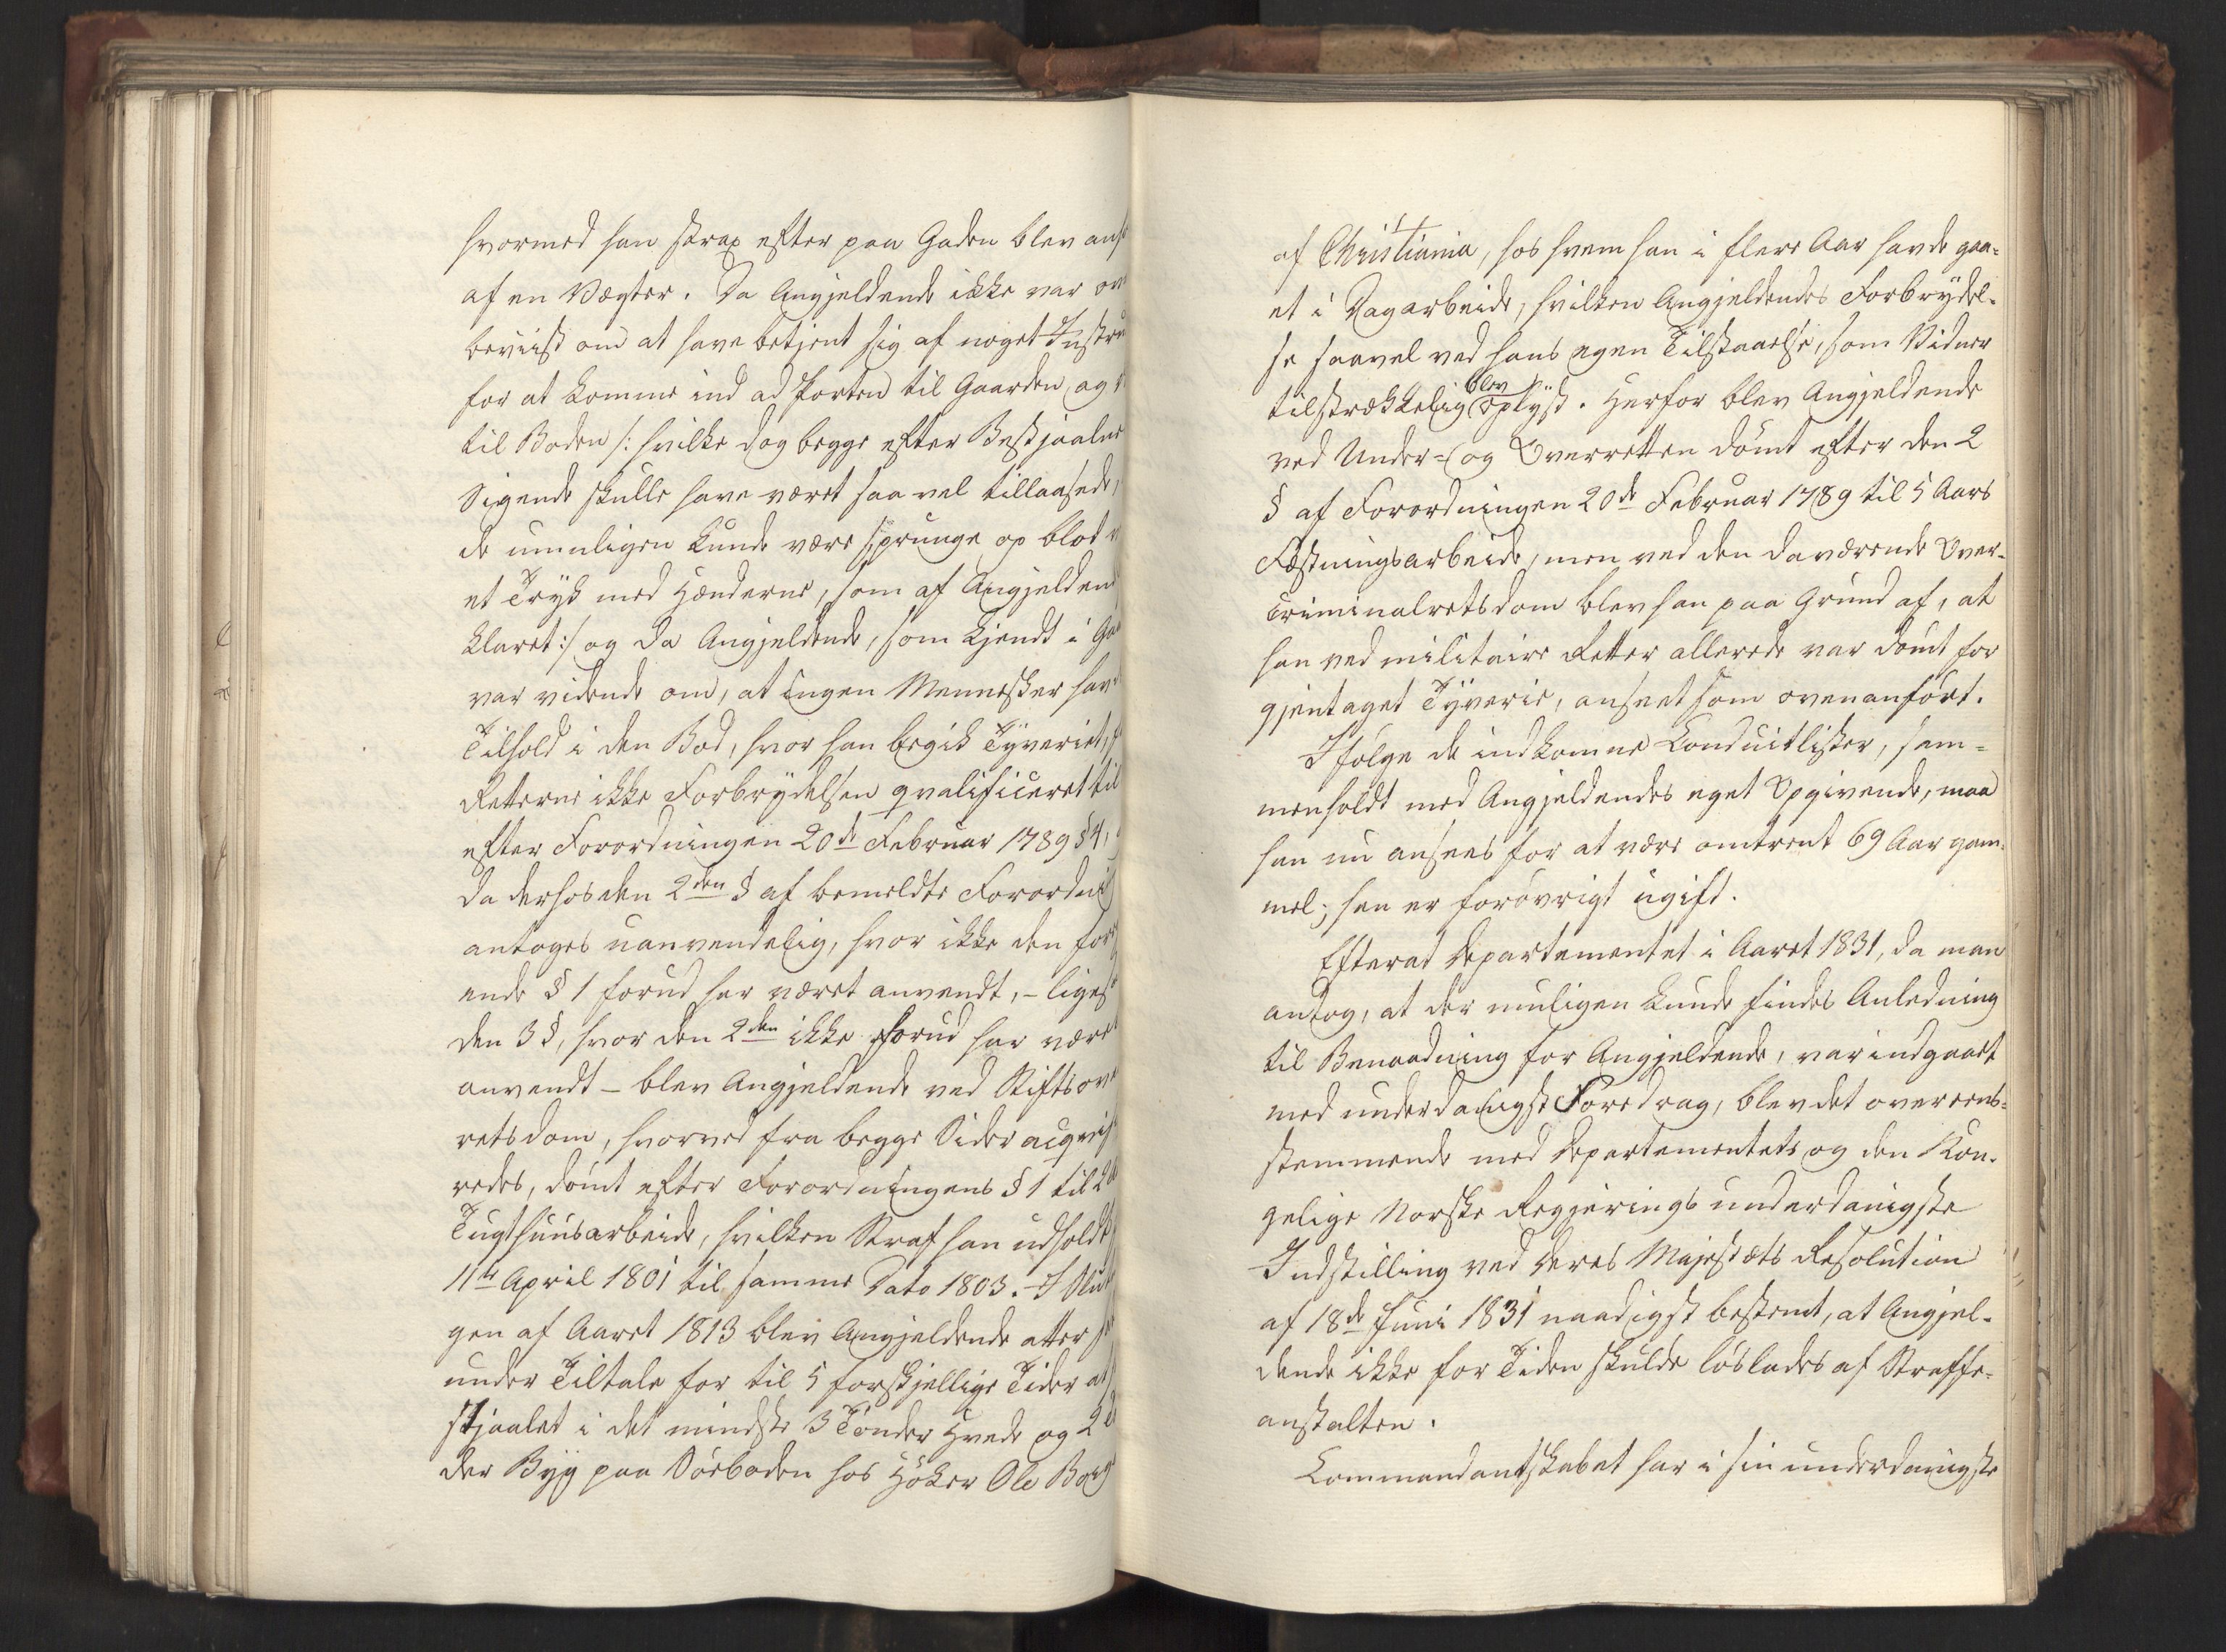 hvormed han strax efter paa Gaden blev
af en Vægter. Da Angjeldende ikke var
beviist om at have betjent sig af noget
for at komme ind ad Porten til Gaarden og
til Boden /: hvilke dog begge efter Bestjaalnes
Sigende skulle have været saa vel tillaasede,
de umuligen kunde være sprunge op blot
et Tryk med Hænderne, som af Angjeldende
klaret :/ og da Angjeldende, som kjendt i
var vidende om, at ingen Mennesker havde
Tilhold i den Bod, hvor han begik Tyveriet,
Retterne ikke Forbrydelsen qvalificeret til
efter Forordningen 20de Februar 1789 § 4,
da derhos den 2den § af bemeldte
antoges uanvendelig, hvor ikke den
ende § 1 forud har været anvendt, – ligesom
den 3 §, hvor den 2den ikke forud har været
anvendt – blev Angjeldende ved
retsdom, hvorved fra begge Sider
redes, dømt efter Forordningens § 1 til 2
Tugthuusarbeide, hvilken Straf han udholdt
11te April 1801 til samme Dato 1803. – I
gen af Aaret 1813 blev Angjeldende atter
under Tiltale for til 5 forskjellige Tider
stjaalet i det mindste 3 Tønder Hvede og 2
der Byg paa Søeboden hos Høker Ole
af Christiania, hos hvem han i flere Aar havde gaa-
et i Dagarbeide, hvilken Angjeldendes Forbrydel-
se saavel ved hans egen Tilstaaelse, som Vidner
tilstrækkelig blev oplyst. Herfor blev Angjeldende
ved Under- og Overretten dømt efter den 2
§ af Forordningen 20de Februar 1789 til 5 Aars
Fæstningsarbeide, men ved den daværende Over-
criminalretsdom blev han paa Grund af, at
han ved militaire Retter allerede var dømt for
gjentaget Tyverie, anseet som ovenanført.
Ifølge de indkomne Conduitlister, sam-
menholdt med Angjeldendes eget Opgivende, maa
han nu ansees for at være omtrent 69 Aar gam-
mel; han er forøvrigt ugift.
Efterat Departementet i Aaret 1831, da man
antog, at der muligen kunde findes Anledning
til Benaadning for Angjeldende, var indgaaet
med underdanigst Foredrag, blev det overeens-
stemmende med Departementets og den Kon-
gelige Norske Regjerings underdanigste
Indstilling ved Deres Majestæts Resolution
af 18de Juni 1831 naadigst bestemt, at Angjel-
dende ikke for Tiden skulde løslades af Straffe-
anstalten.
Commandantskabet har i sin underdanigste